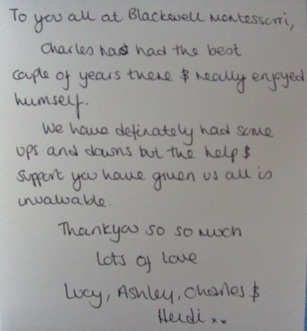 To you all at Blackwell Montessorri,
Charles has had the best
couple of years there & really enjoyed
humself.
We have definately had some
ups and downs but the help &
support you have given us all is
invaluable.
Thankyou so so much
Lots of love
Lucy, Ashley, Charles &
Heidi xx